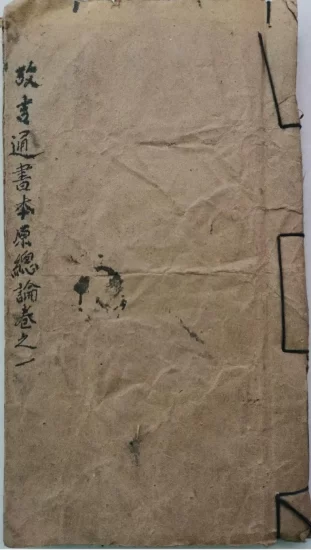 攷吉通書本原總論卷之一